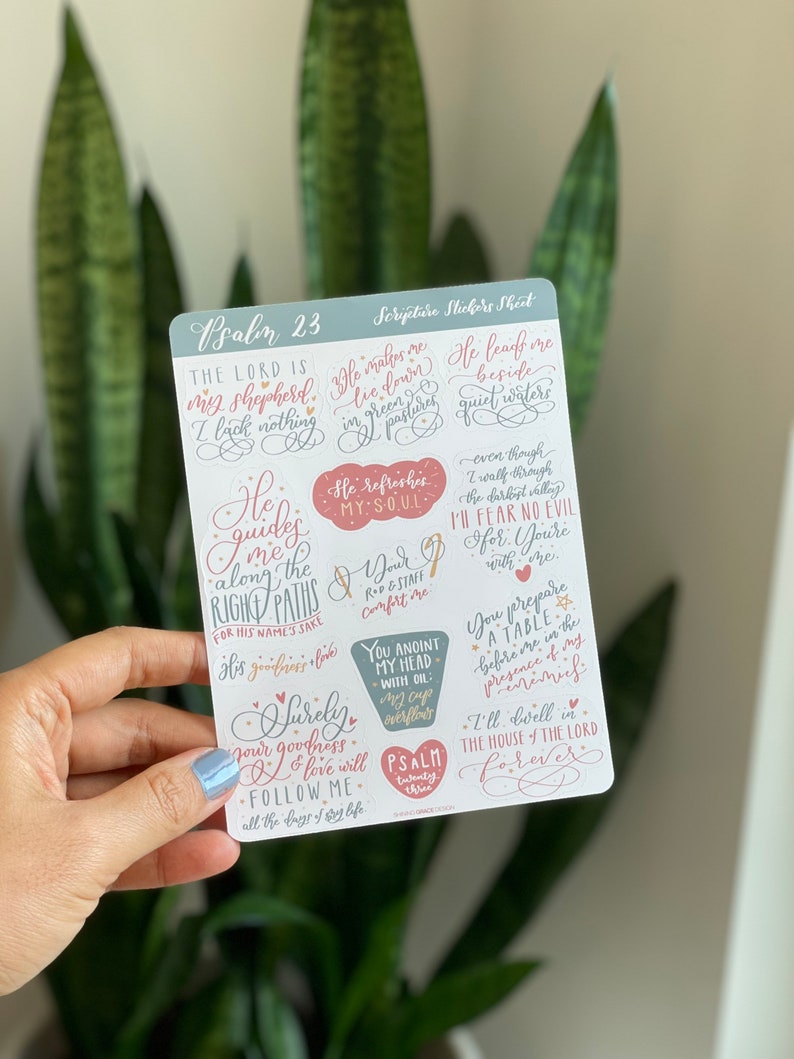 Psalm 23
Scripture Stickers Sheet
THE LORD IS
my shepherd
I lack nothing
He makes me
lie down
in green
pastures
He leads me
beside
quiet waters
He
guides
me
along the
RIGHT PATHS
FOR HIS NAME'S SAKE
He refreshes
MY SOUL
even though
I walk through
the darkest valley
I'll FEAR NO EVIL
for You're
with me.
Your
ROD & STAFF
comfort me.
His goodness + love
YOU ANOINT
MY HEAD
WITH OIL:
my cup
overflows
You prepare
A TABLE
before me in the
presence of my
enemies
Surely
your goodness
& love will
FOLLOW ME
all the days of my life.
PSALM
twenty
three
I'll dwell in
THE HOUSE of THE LORD
forever
SHINING GRACE DESIGN